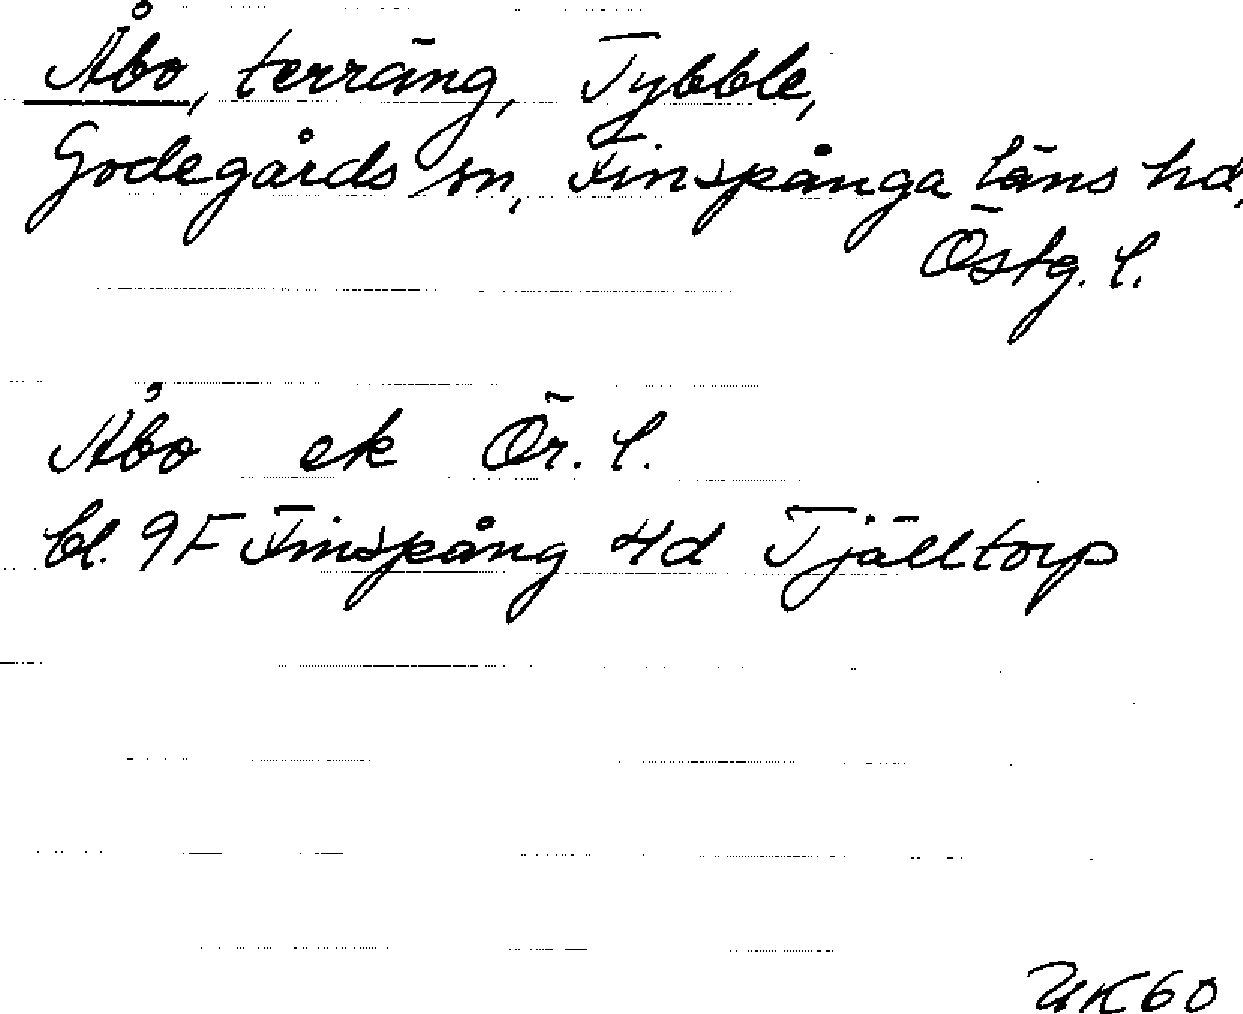 Åbo, terräng, Tybble,
Godegårds sn, Finspånga läns hd,
Östg. l.
Åbo ek Ör. l.
bl. 9F Finspång 4d Tjälltorp
UK60